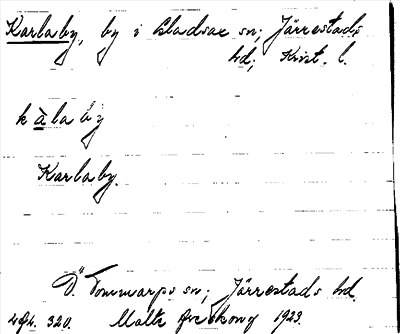 Karlaby, by i Gladsax sn; Järrestads
hd; Krist. l.
kàlaby
Karlaby.
Ö. Tommarps sn; Järrestads hd.
320. Malte Areskoug 1923.